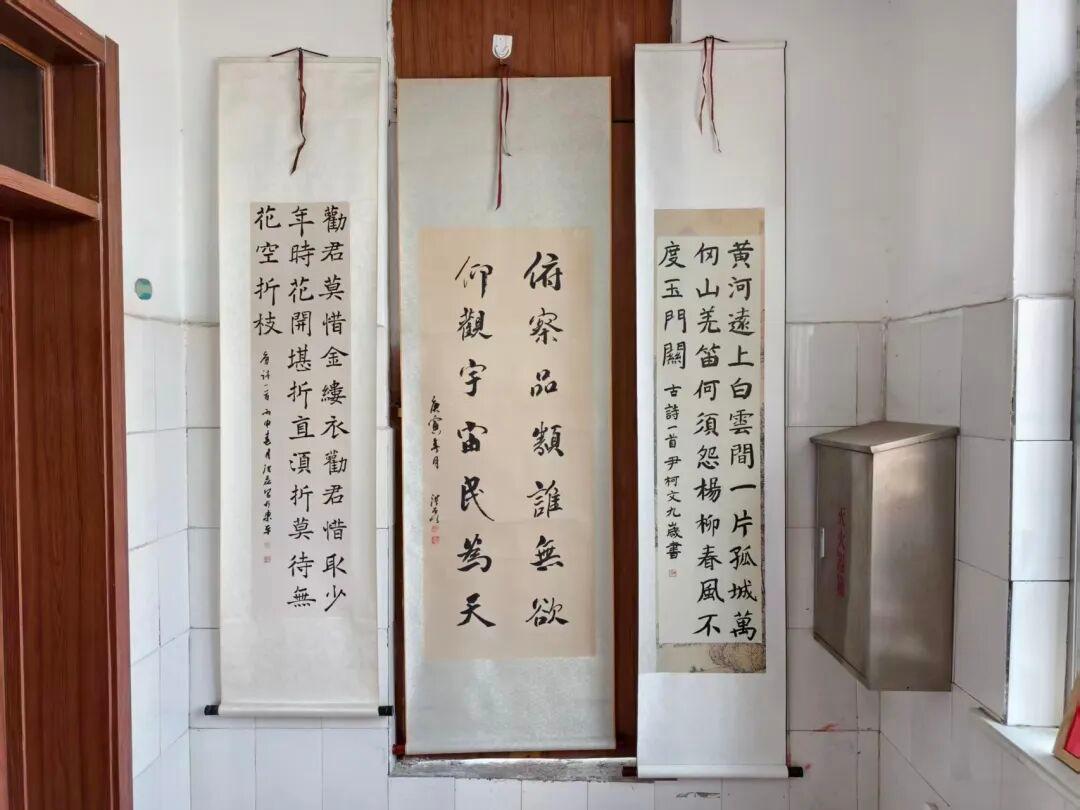 黄河遠上白雲間一片孤城萬
仞山羌笛何須怨楊柳春風不
度玉門關
古詩一首 尹柯文九歲書
俯察品類誰無欲
仰觀宇宙民為天
庚寅年月
勸君莫惜金縷衣勸君惜取少
年時花開堪折直須折莫待無
花空折枝
詩一首 丙申春月
灭火器箱